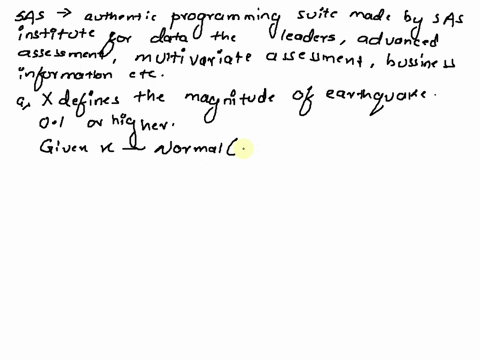 SAS → authentic programming suite made by SAS
institute for data the leaders, advanced
assessment, multivariate assessment, bussiness
information etc.
a, X defines the magnitude of earthquake.
0.1 or higher.
Given x ⊥ Normal (